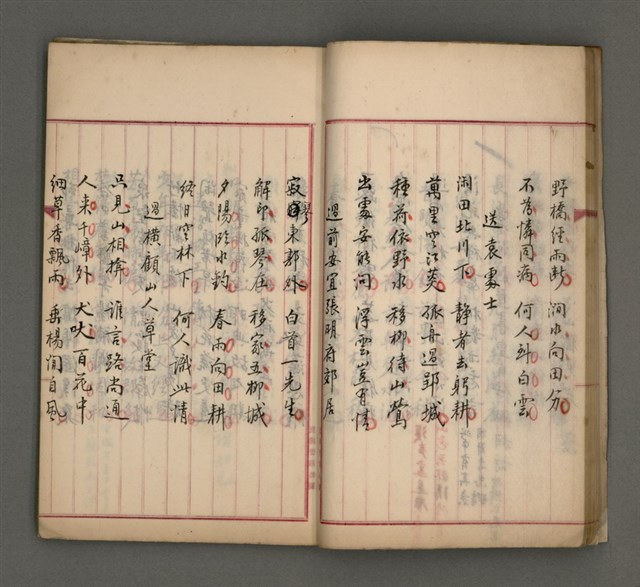 野橋經雨斷 澗水向田分
不為憐同病 何人到白雲
送袁處士
閒田北川下 靜者去躬耕
萬里空江菼 孤舟過郢城
種荷依野水 移柳待山鶯
出處安能問 浮雲豈有情
過前安宜張明府郊居
寂寥東郭外 白首一先生
解印孤琴在 移家五柳城
夕陽臨水釣 春雨向田耕
終日空林下 何人識此情
過橫顧山人草堂
只見山相掩 誰言路尚通
人來千嶂外 犬吠百花中
細草香飄雨 垂楊閒自風